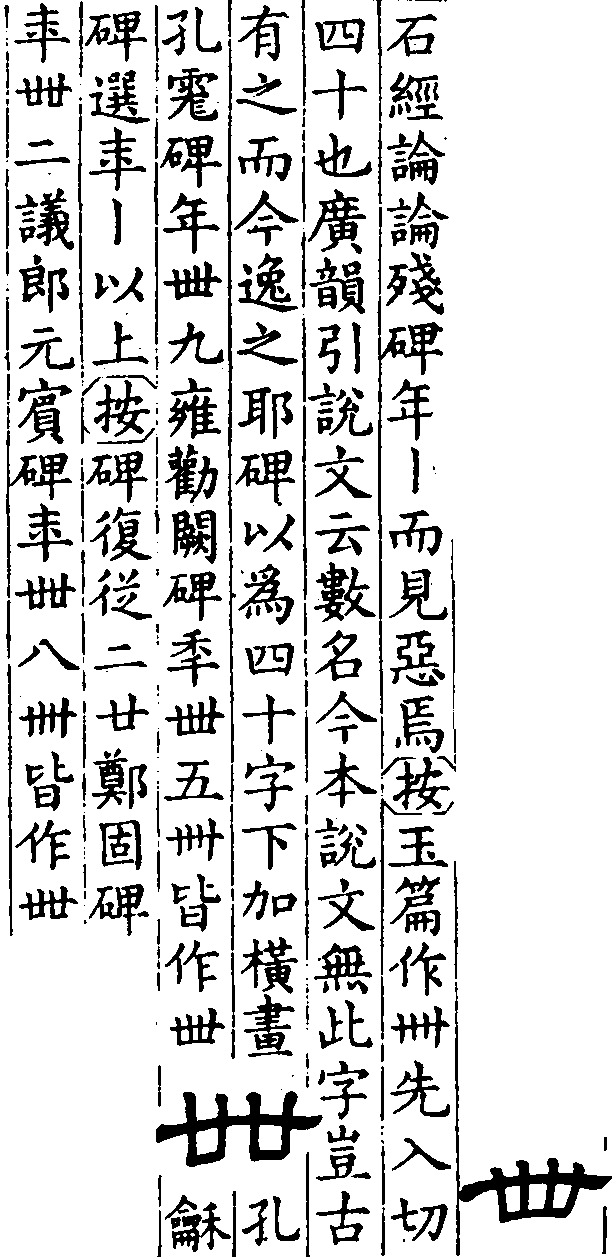 𠀍
石經論論殘碑年丨而見惡焉按玉篇作卌先入切
四十也廣韻引說文云數名今本說文無此字豈古
有之而今逸之耶碑以爲四十字下加橫畫
孔碑年𠀍九雍勸闕碑秊𠀍五卌皆作𠀍
廿廿
孔
龢
碑選年丨以上按碑復從二廿鄭固碑
年𠀍二議郎元賓碑年𠀍八卌皆作𠀍